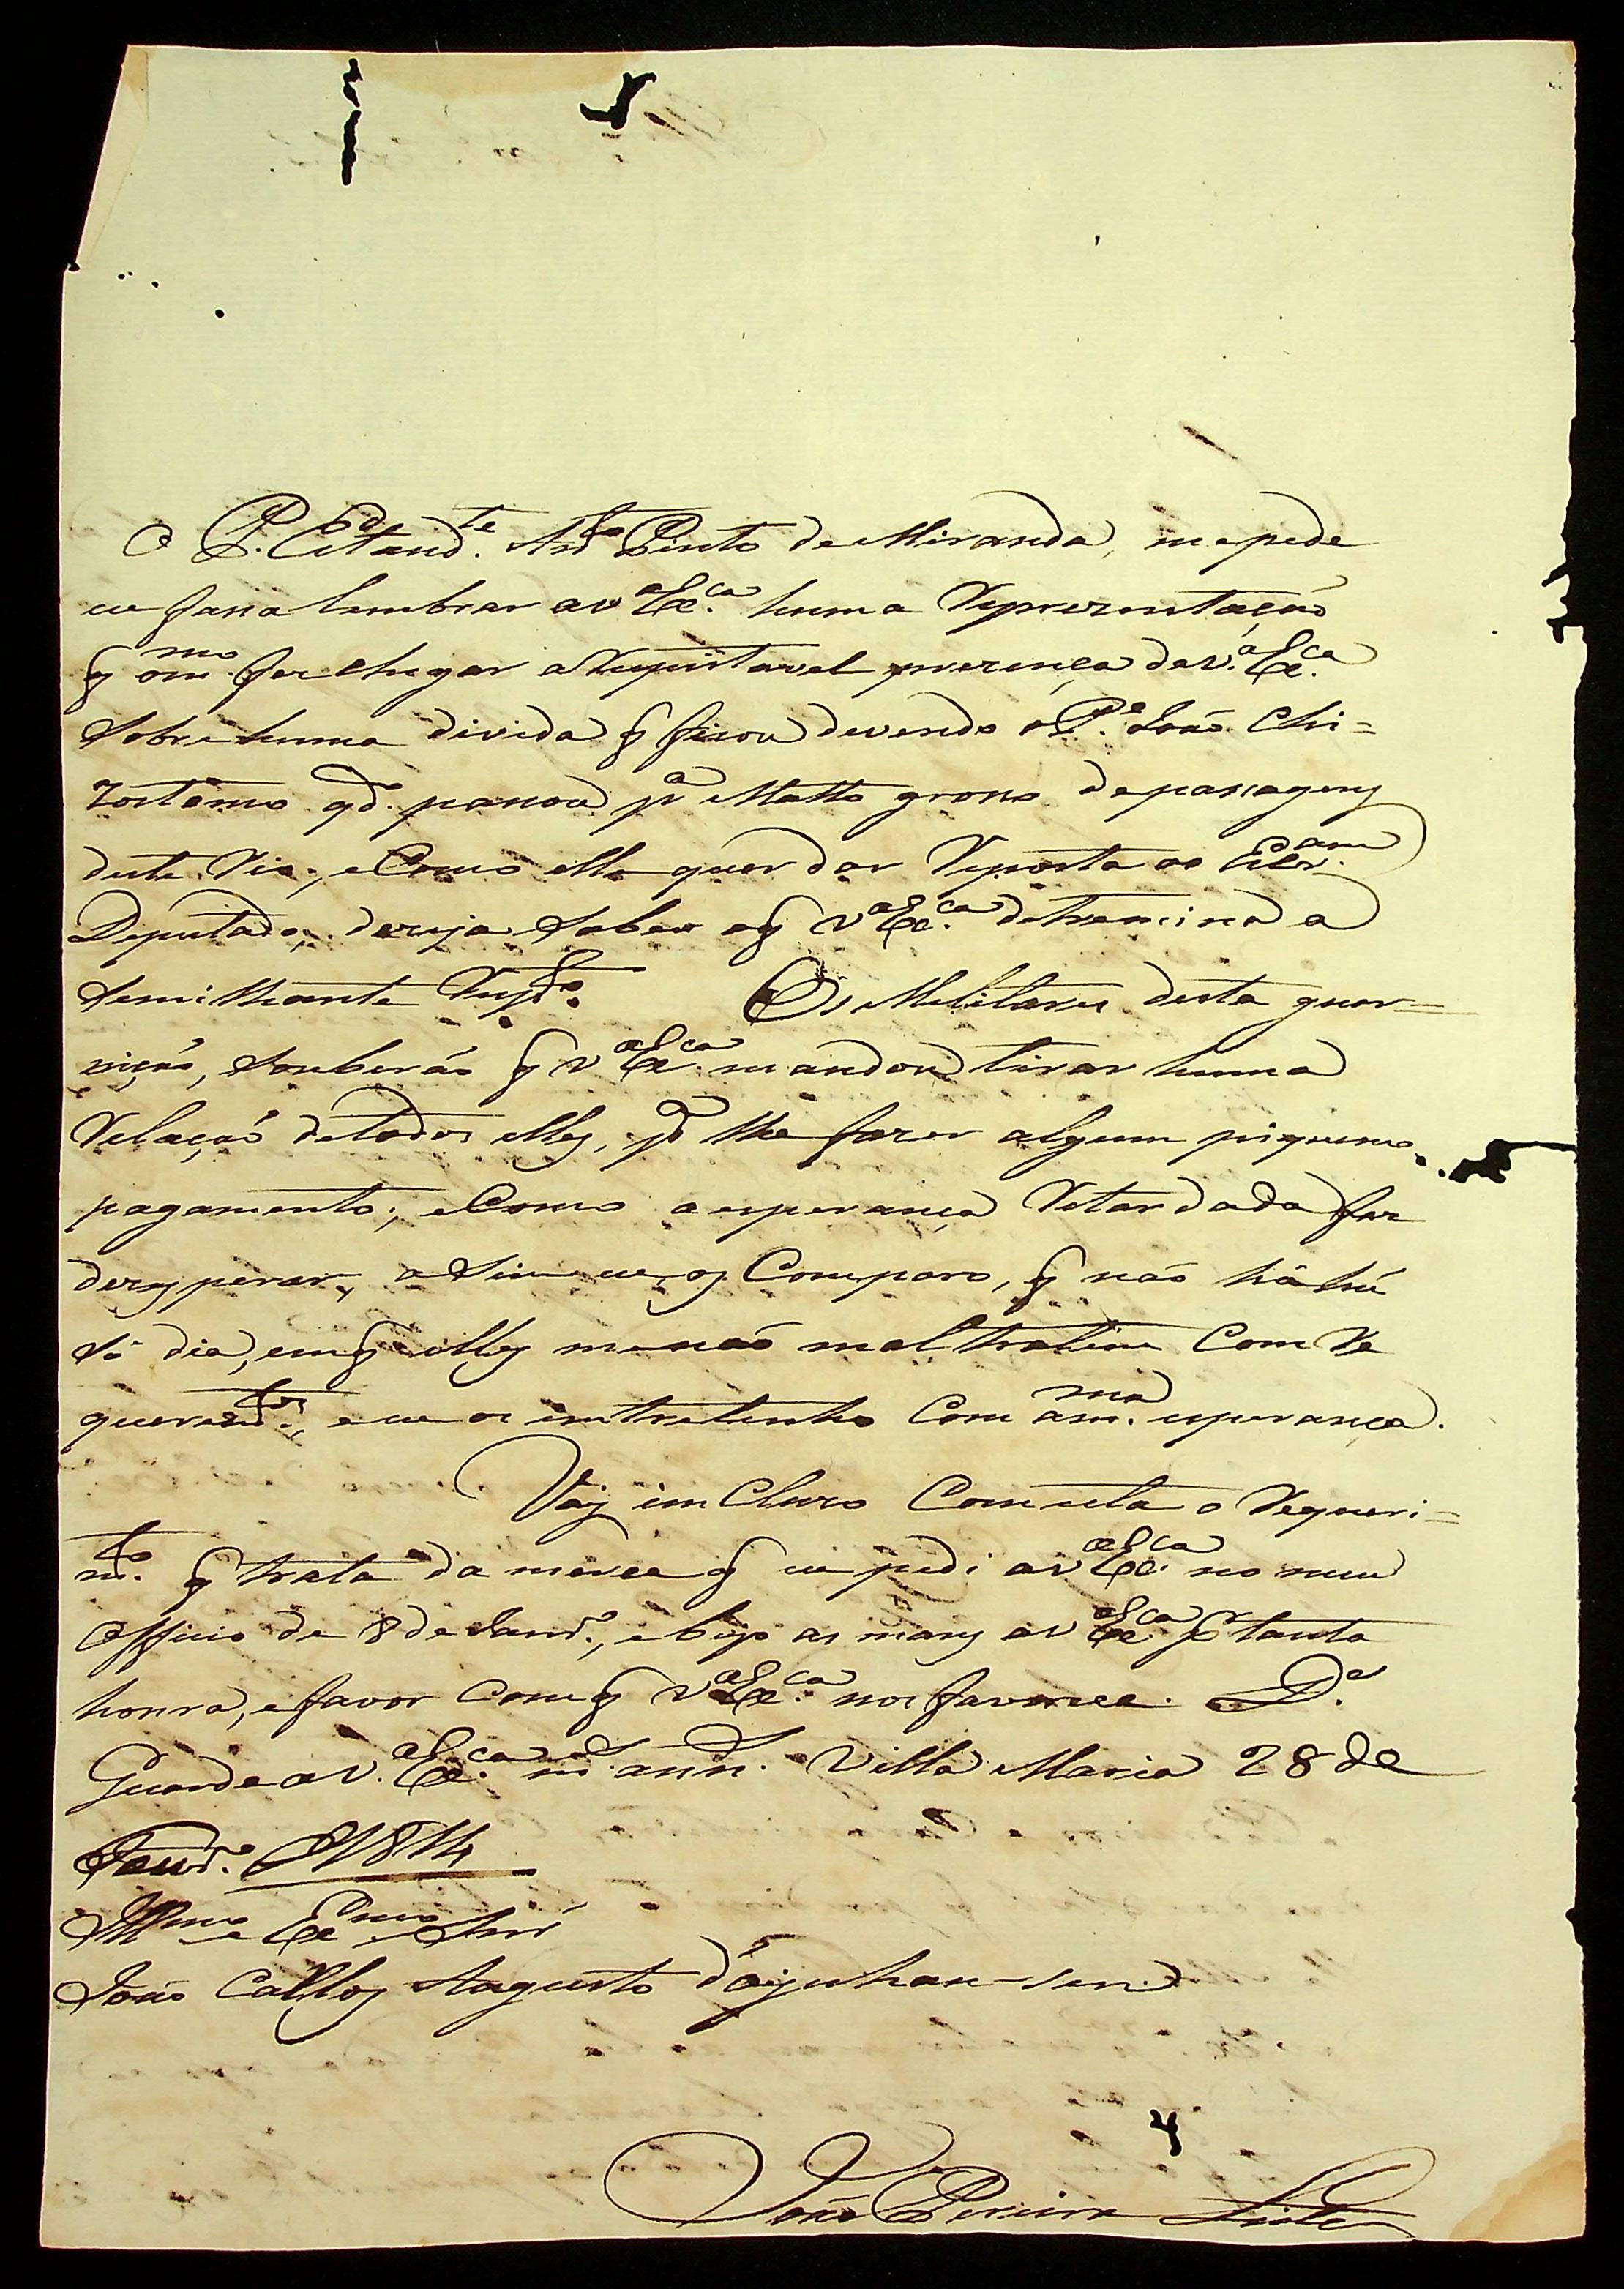 O P. Estand.te Ant.o Pinto de Miranda, me pede
eu fasa lembrar a v.a Ex.ca huma Reprezentação
q̃ o m.mo fez chegar a Respeitavel prezença de v.a Ex.ca
sobre huma divida q̃ ficou devendo o P.e João Chi=
zostemo q.do pasou p.a Matto groso de pasagem
deste Rio; e Como elle quer dar Reposta ao
Deputado, dezeja saber o q̃ v.a Ex.ca detremina a
semilhante Resp.to Os Melitares desta guar=
nição, souberão q̃ v.a Ex.ca mandou tirar huma
Relação de todos elles, p.a lhe fazer algum piqueno
pagamento; e Como a esperança Retardada faz
dezesperar, asim eu os Comparo, q̃ não há hú
só dia, em q̃ elles me não maltratem Com Re
querim.tos, e eu os intretenho Com a m.ma esperança.
Vay incluzo Com esta o Requeri=
m.to q̃ trata da merce q̃ eu pedi a v.a Ex.ca no meu
Officio de 8 de Janr.o, e bejo as mãos a v.a Ex.ca p.r tanta
honra, e favor Com q̃ v.a Ex.ca nos favorece. D.s
Guarde a v.a Ex.ca m.s ann.s Villa Maria 28 de
Janr.o d 1814
Ill.mo e Ex.mo Snr
João Carlos Augusto d'Oyenhausen
João Pereira Leite